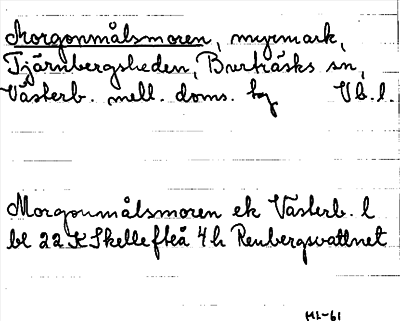 Morgonmålsmoren, myrmark,
Tjärnbergsheden, Burträsks sn,
Västerb. mell. doms. tg Vb. l.
Morgonmålsmoren ek Västerb. l
bl 22 K Skellefteå 4 h Renbergsvattnet
HL-61